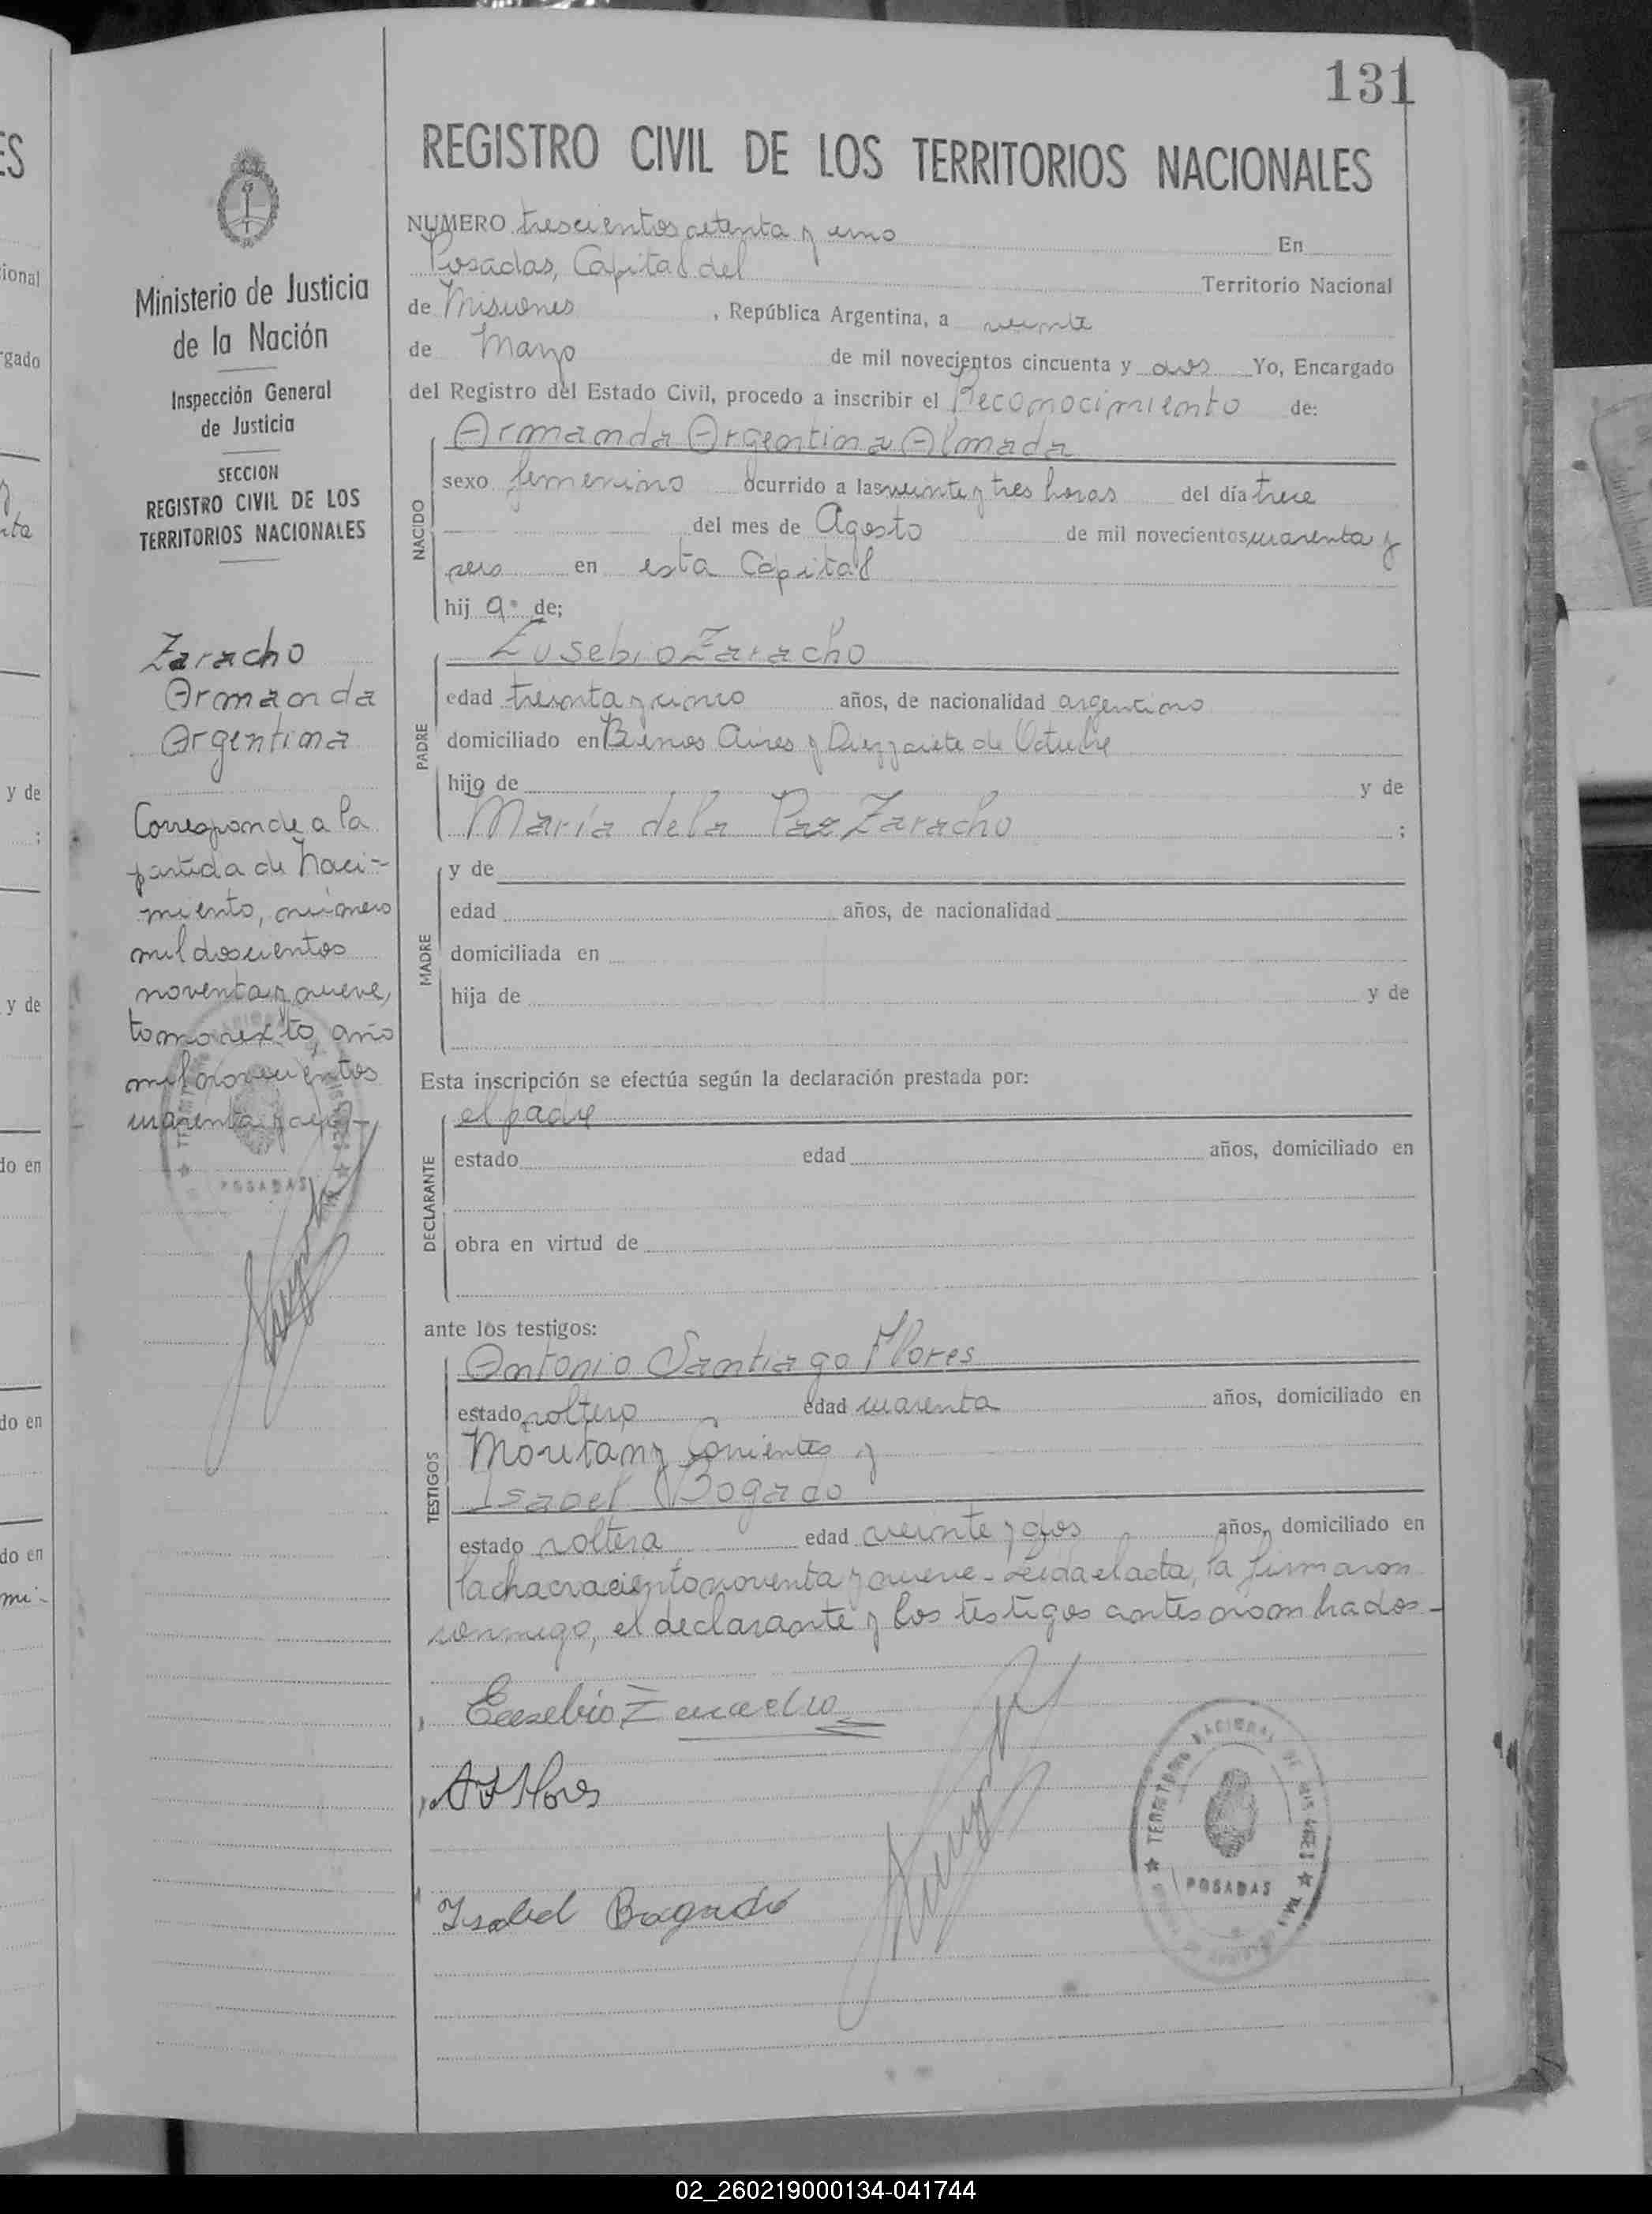 131
REGISTRO CIVIL DE LOS TERRITORIOS NACIONALES
Ministerio de Justicia
de la Nación
Inspección General
de Justicia
SECCION
REGISTRO CIVIL DE LOS
TERRITORIOS NACIONALES
Zaracho
Armanda
Argentina
Corresponde a la
partida de naci-
miento, número
mil doscientos
noventa y nueve,
tomo sexto, año
mil novecientos
cuarenta y seis-
POSADAS
NUMERO trescientos setenta y uno En
Posadas, Capital del Territorio Nacional
de Misiones, República Argentina, a veinte
de Mayo de mil novecientos cincuenta y dos Yo, Encargado
del Registro del Estado Civil, procedo a inscribir el Reconocimiento de:
NACIDO
Armanda Argentina Almada
sexo femenino ocurrido a las veinte y tres horas del día trece
del mes de Agosto de mil novecientos cuarenta y
seis en esta Capital
hij a. de;
PADRE
Eusebio Zaracho
edad treinta y cinco años, de nacionalidad argentino
domiciliado en Buenos Aires y Diez y siete de Octubre
hijo de y de
María de la Paz Zaracho ;
MADRE
y de
edad años, de nacionalidad
domiciliada en
hija de y de
Esta inscripción se efectúa según la declaración prestada por:
DECLARANTE
el padre
estado edad años, domiciliado en
obra en virtud de
ante los testigos:
TESTIGOS
Antonio Santiago Flores
estado soltero edad cuarenta años, domiciliado en
Moritan y Corrientes y
Isabel Bogado
estado soltera edad veinte y dos años, domiciliado en
la chacra ciento noventa y nueve- Leida el acta, la firmaron
conmigo, el declarante y los testigos antes nombrados-
Eusebio Zaracho
A S Flores
Isabel Bogado
TERRITORIO NACIONAL DE MISIONES
POSADAS
02_260219000134-041744